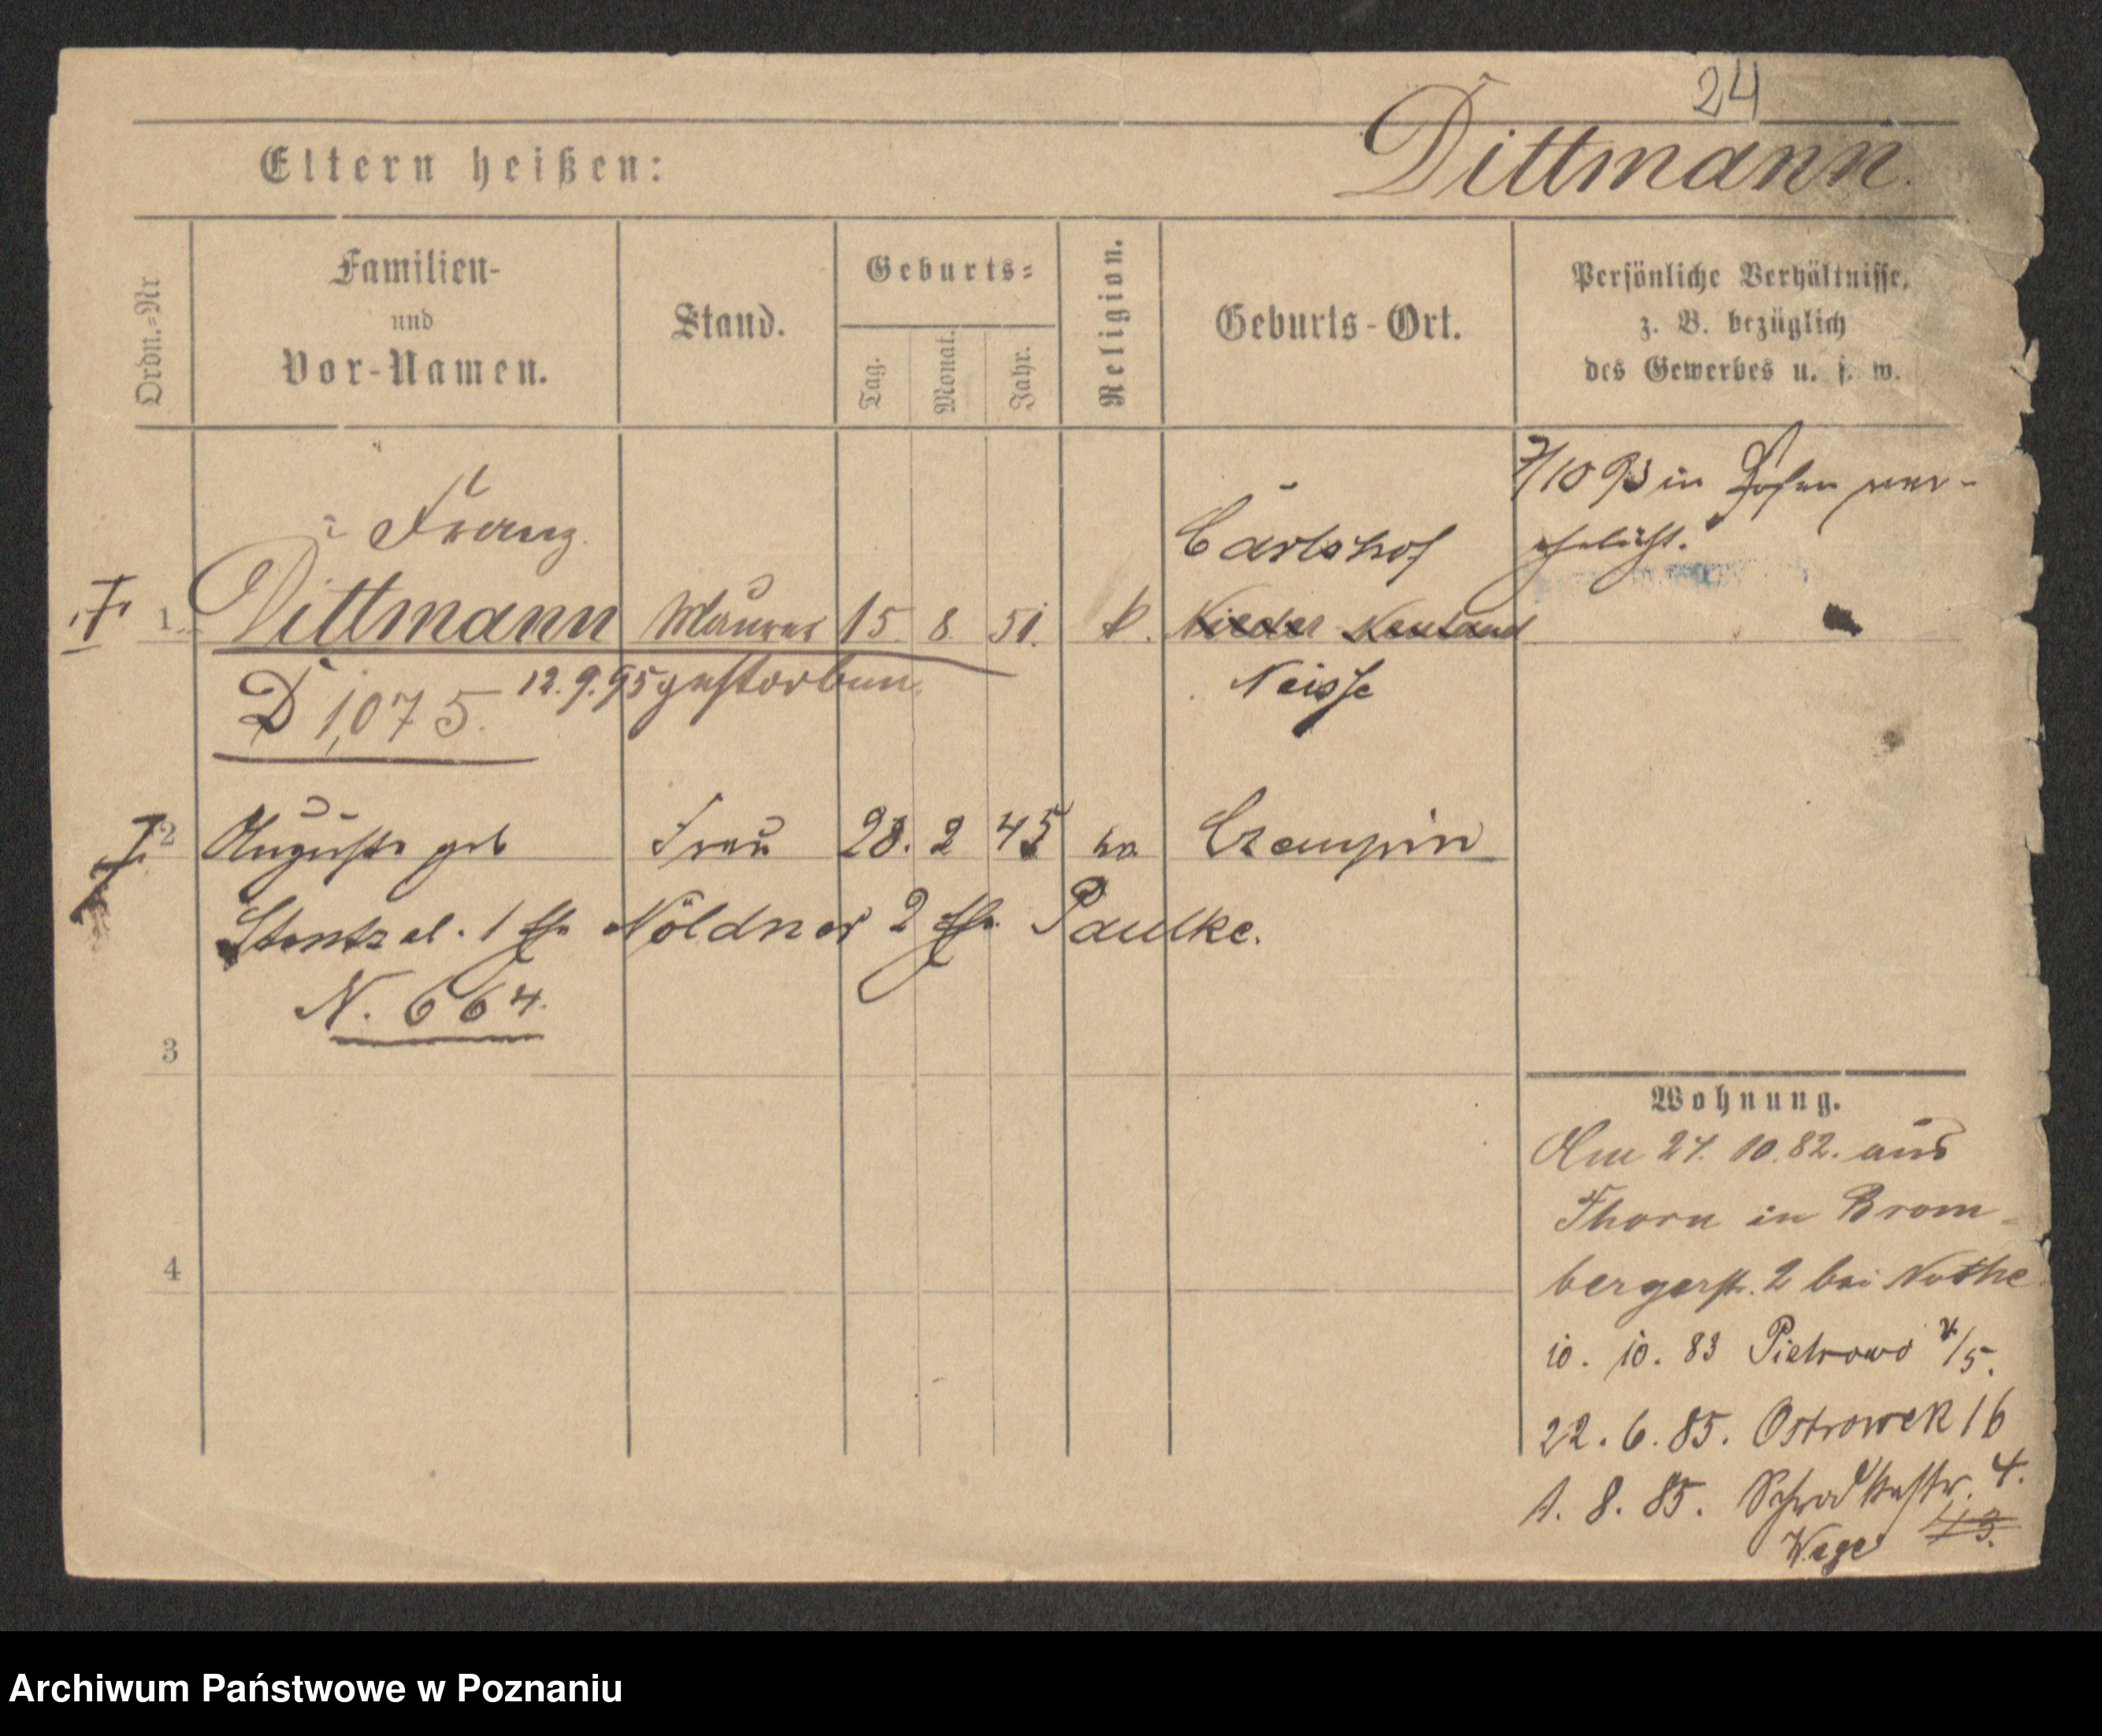 24
Eltern heißen:
Dittmann.
Ordn.-Nr
Familien-
und
Vor-Namen.
Stand.
Geburts-
Tag.
Monat.
Jahr.
Religion.
Geburts-Ort.
Persönliche Verhältnisse,
z. B. bezüglich
des Gewerbes u. s. w.
7/10 93 in Posen ver-
ehelicht.
Franz
Carlshof
1. Dittmann Maurer 15 8 51. k. Nieder Neuland
12.9.95 gestorben.
Neisse
D 1075.
2 Auguste geb Frau 28. 2 45 Czempin
Stentzel. 1 Eh. Nöldner 2 Eh. Paulke.
N. 664.
3
4
Wohnung.
Am 27. 10. 82. aus
Thorn in Brom-
bergerstr. 2 bei Nothe
10. 10. 83 Pietrowo 4/5.
22. 6. 85. Ostrowek 16
1. 8. 85. Schrodkastr. 4.
13.
Archiwum Państwowe w Poznaniu